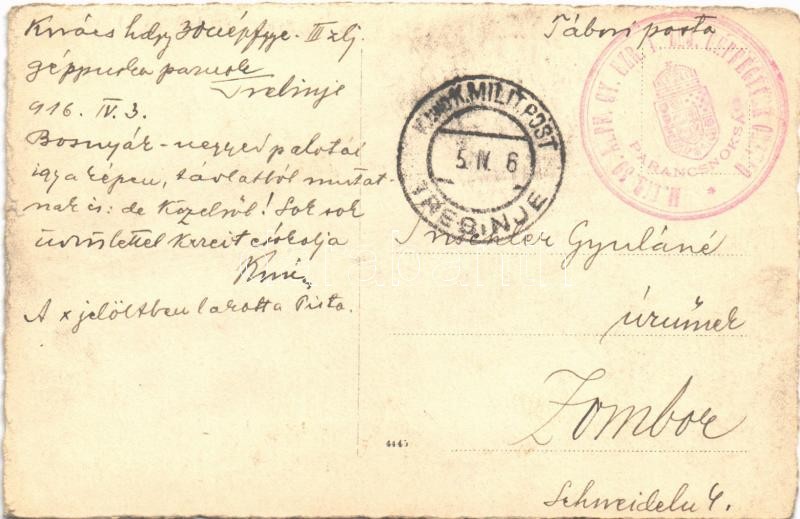 Kovács hdgy 30 népfgye. III zlj.
géppuska
Trebinje
916. IV. 3.
Bosnyák-negyed palotái
így a képen, távlatból mutat-
nak is: de közelről! Sok sok
üdvözlettel kezeit csókolja
A x jelöltben lakott a Pista.
Tábori posta
K. und K. MILIT. POST
5. IV. 6
TREBINJE
PARANCSNOKSÁG
Gyuláné
úrnőnek
Zombor
4445